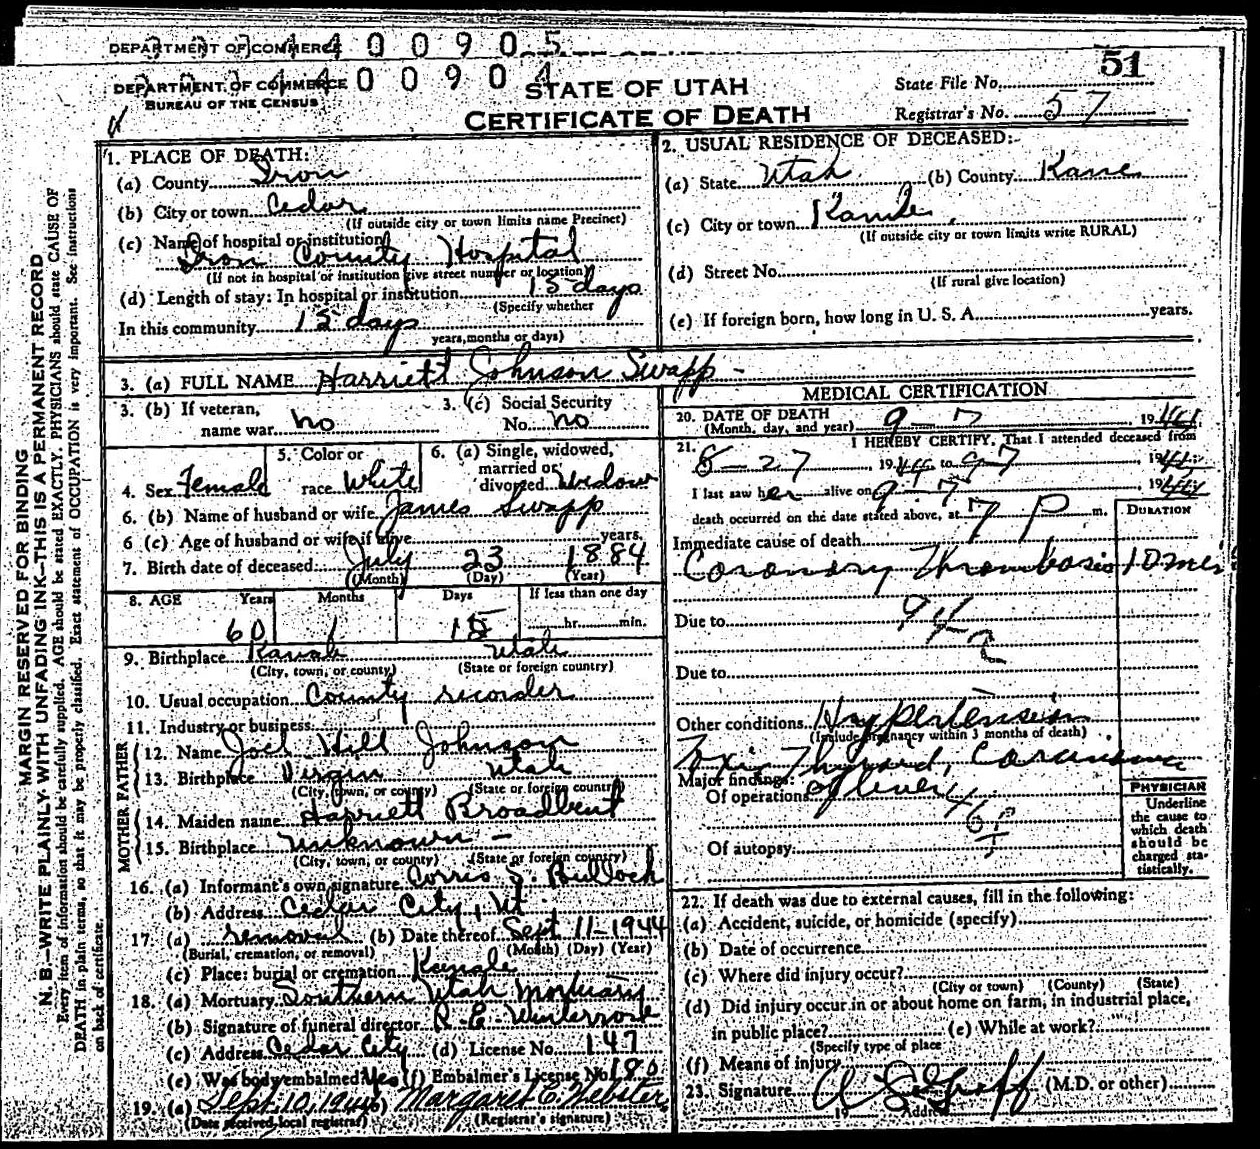 DEPARTMENT OF COMMERCE 400905
DEPARTMENT OF COMMERCE 400904
BUREAU OF THE CENSUS
STATE OF UTAH
CERTIFICATE OF DEATH
State File No. 51
Registrar's No. 57
MARGIN RESERVED FOR BINDING
N. B.—WRITE PLAINLY, WITH UNFADING INK—THIS IS A PERMANENT RECORD
Every item of information should be carefully supplied. AGE should be stated EXACTLY. PHYSICIANS should state CAUSE OF
DEATH in plain terms, so that it may be properly classified. Exact statement of OCCUPATION is very important. See instructions
on back of certificate.
1. PLACE OF DEATH:
(a) County Iron
(b) City or town Cedar
(If outside city or town limits name Precinct)
(c) Name of hospital or institution
Iron County Hospital
(If not in hospital or institution give street number or location)
(d) Length of stay: In hospital or institution 15 days
(Specify whether
In this community 15 days
years, months or days)
2. USUAL RESIDENCE OF DECEASED:
(a) State Utah (b) County Kane
(c) City or town
(If outside city or town limits write RURAL)
(d) Street No.
(If rural give location)
(e) If foreign born, how long in U. S. A. years.
3. (a) FULL NAME Harriett Johnson Swapp
3. (b) If veteran, name war no
3. (c) Social Security No. no
4. Sex Female
5. Color or race White
6. (a) Single, widowed, married or divorced Widow
6. (b) Name of husband or wife James Swapp
6 (c) Age of husband or wife if alive years.
7. Birth date of deceased July 23 1884
(Month) (Day) (Year)
8. AGE Years Months Days If less than one day
60 1 15 hr. min.
9. Birthplace Kanab Utah
(City, town, or county) (State or foreign country)
10. Usual occupation County recorder
11. Industry or business:
FATHER
12. Name Joel Hill Johnson
13. Birthplace Virgin Utah
(City, town, or county) (State or foreign country)
MOTHER
14. Maiden name Harriett Broadbent
15. Birthplace unknown
(City, town, or county) (State or foreign country)
16. (a) Informant's own signature Corris S. Bulloch
(b) Address Cedar City, Ut
17. (a) removal (b) Date thereof Sept 11-1944
(Burial, cremation, or removal) (Month) (Day) (Year)
(c) Place: burial or cremation
18. (a) Mortuary Southern Utah Mortuary
(b) Signature of funeral director
(c) Address Cedar City (d) License No. 147
(e) Was body embalmed Yes (f) Embalmer's License No 180
19. (a) Sept. 10, 1944 (b) Margaret E. Webster
(Date received local registrar) (Registrar's signature)
MEDICAL CERTIFICATION
20. DATE OF DEATH 9-7 1944
(Month, day, and year)
21. I HEREBY CERTIFY, That I attended deceased from
8-27, 1944, to 9-7 1944
I last saw her alive on 9-7 1944
death occurred on the date stated above, at 7 P m.
DURATION
Immediate cause of death
Coronary Thrombosis 10 min
Due to 94a
Due to
Other conditions Hypertension
(Include pregnancy within 3 months of death)
Toxic Thyroid, Carcinoma
Major findings: of liver
Of operations 46f
Of autopsy
PHYSICIAN
Underline
the cause to
which death
should be
charged sta-
tistically.
22. If death was due to external causes, fill in the following:
(a) Accident, suicide, or homicide (specify)
(b) Date of occurrence
(c) Where did injury occur?
(City or town) (County) (State)
(d) Did injury occur in or about home on farm, in industrial place,
in public place? (e) While at work?
(Specify type of place
(f) Means of injury
23. Signature (M.D. or other)
19 Address